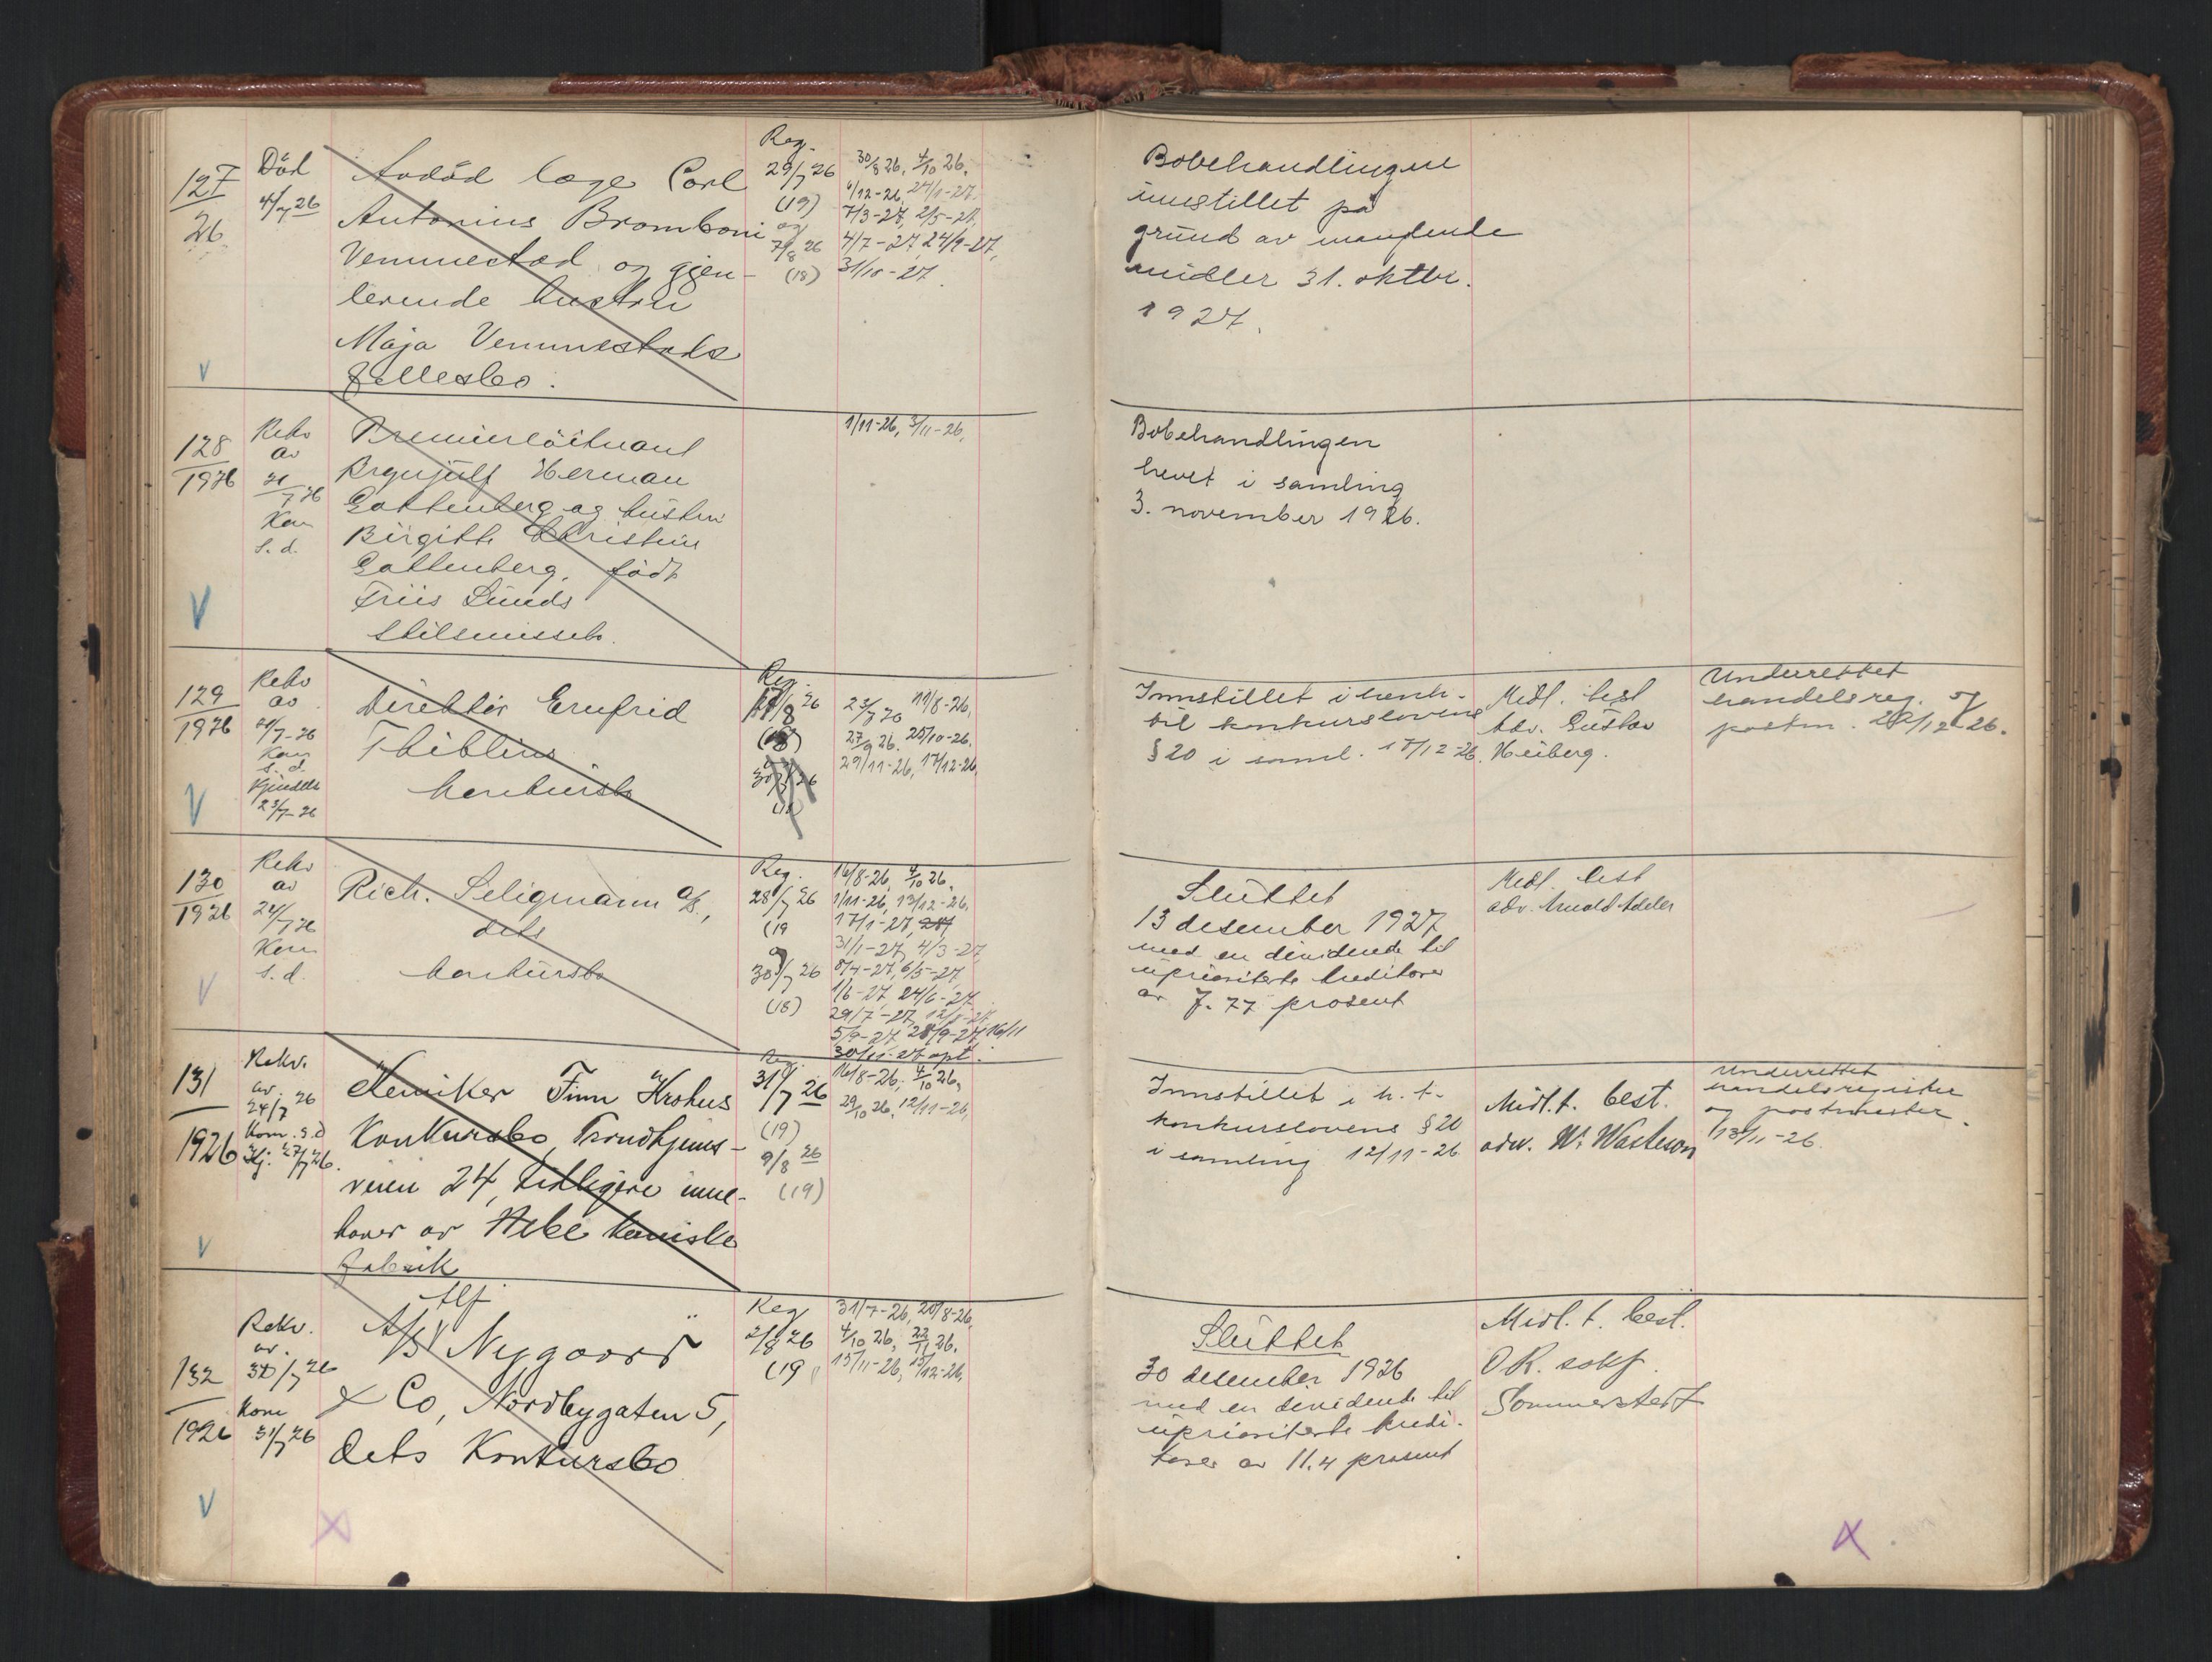 127
26
Död
4/7 26
Avdöd læge Carl
Antonius Bromboni
Vemmestad og gjen-
levende hustru
Maja Vemmestads
fellesbo.
Reg.
29/7 26
(19)
og
7/8 26
(18)
30/8 26, 4/10 26,
6/12-26, 24/1-27.
7/3-27, 2/5-27,
4/7-27, 24/9-27,
31/10-27.
Bobehandlingen
innstillet på
grund av manglende
midler 31. oktbr.
1927.
V
128
1926
Rekv
av
7 26
Kon
s. d.
Premierlöitnant
Brynjulf Herman
Gottenberg og hustru
Birgitte Christine
Gottenberg, födt
Friis Lunds
skilsmisseb.
1/11-26, 3/11-26,
Bobehandlingen
hevet i samling
3. november 1926.
V
129
1926
Rekv
av
20/7-26
Kon
s. d.
Kjendelse
23/7-26
Direktör Ernfrid
Thiblins
konkursbo
Reg.
26
30/7 26
(18)
11/8-26,
27/9 26. 25/10-26.
29/11-26, 17/12-26,
Innstillet i henh.
til konkurslovens
§ 20 i saml. 17/12-26.
Midl. best
Adv. Gustav
Heiberg.
Underrettet
handelsreg. og
postm. 22/12-26.
V
130
1926
Rekv
av
24/7 26
Kon
s. d.
Rich. Seligmann A/S,
dets
konkursbo
Reg.
28/7 26
(19
og
30/7 26
(18)
16/8-26, 4/10 26,
1/11-26, 13/12-26,
17/1-27,
31/1-27, 4/3-27,
8/4-27, 6/5-27,
1/6-27, 24/6-27,
29/7-27, 12/8-27,
5/9-27, 28/9-27, 16/11
30/11-27 opt.
Sluttet
13 desember 1927
med en dividende til
uprioriterte kreditorer
av 7.77 prosent
Midl. best
adv. Arnold Adeler
V
131
1926
Rekv.
av. 26
24/7
Kom. s.d
Kj. 27/7 26.
Kemiker Finn Krohus
Konkursbo, Trondhjems-
veien 24, tidligere inne-
haver av Hebe kemiske
fabrik
Reg.
31/7 26
(19)
9/8 26
(19)
16/8-26, 4/10 26,
29/10 26, 12/11-26,
Innstillet i h. t.
konkurslovens § 20
i samling 12/11-26
Midl. t. best.
adv. W. Wasteson
Underrettet
handelsregister
og postmester.
13/11-26.
V
132
1926
Rekv.
av.
30/7 26
Kom
31/7 26
Alf
A/S Nygaard
& Co, Nordbygaten 5,
dets Konkursbo
Reg
2/8 26
(19)
31/7-26, 20/8-26,
4/10 26, 22/11 26.
15/11-26, 15/12-26,
Sluttet
30 desember 1926
med en dividende til
uprioriterte kredi-
torer av 11.4 prosent
Midl. t. best.
O.R. sakf.
Sommerstedt
V
X
X